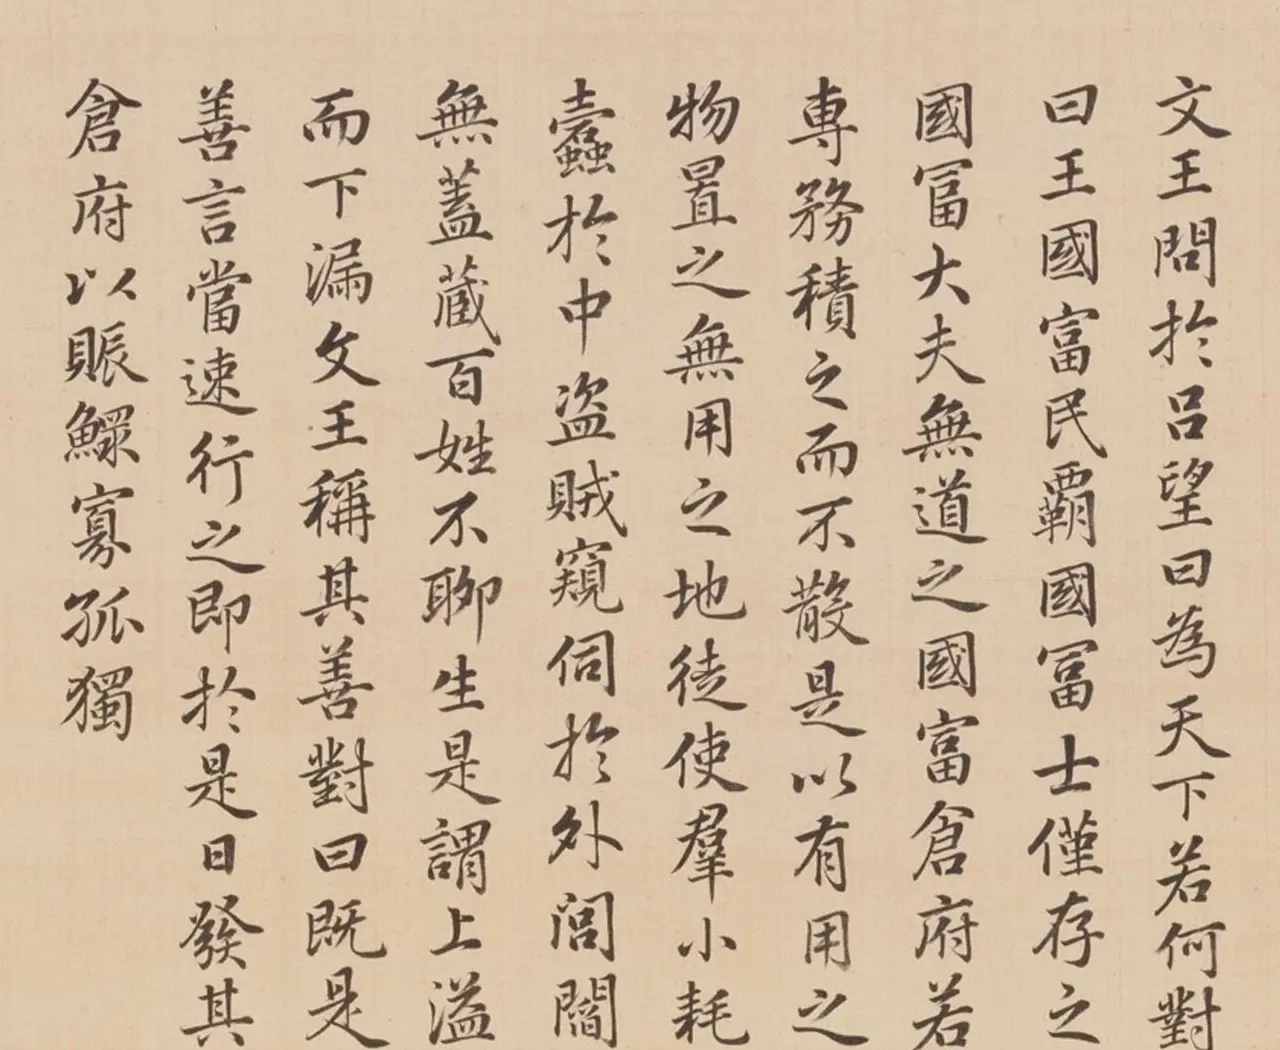 文王問於呂望曰為天下若何對
曰王國富民霸國冨士僅存之
國冨大夫無道之國富倉府若
専務積之而不散是以有用之
物置之無用之地徒使羣小耗
蠹於中盗賊窺伺於外閭閻
無蓋蔵百姓不聊生是謂上溢
而下漏文王稱其善對曰既是
善言當速行之即於是日發其
倉府以賑鰥寡孤獨